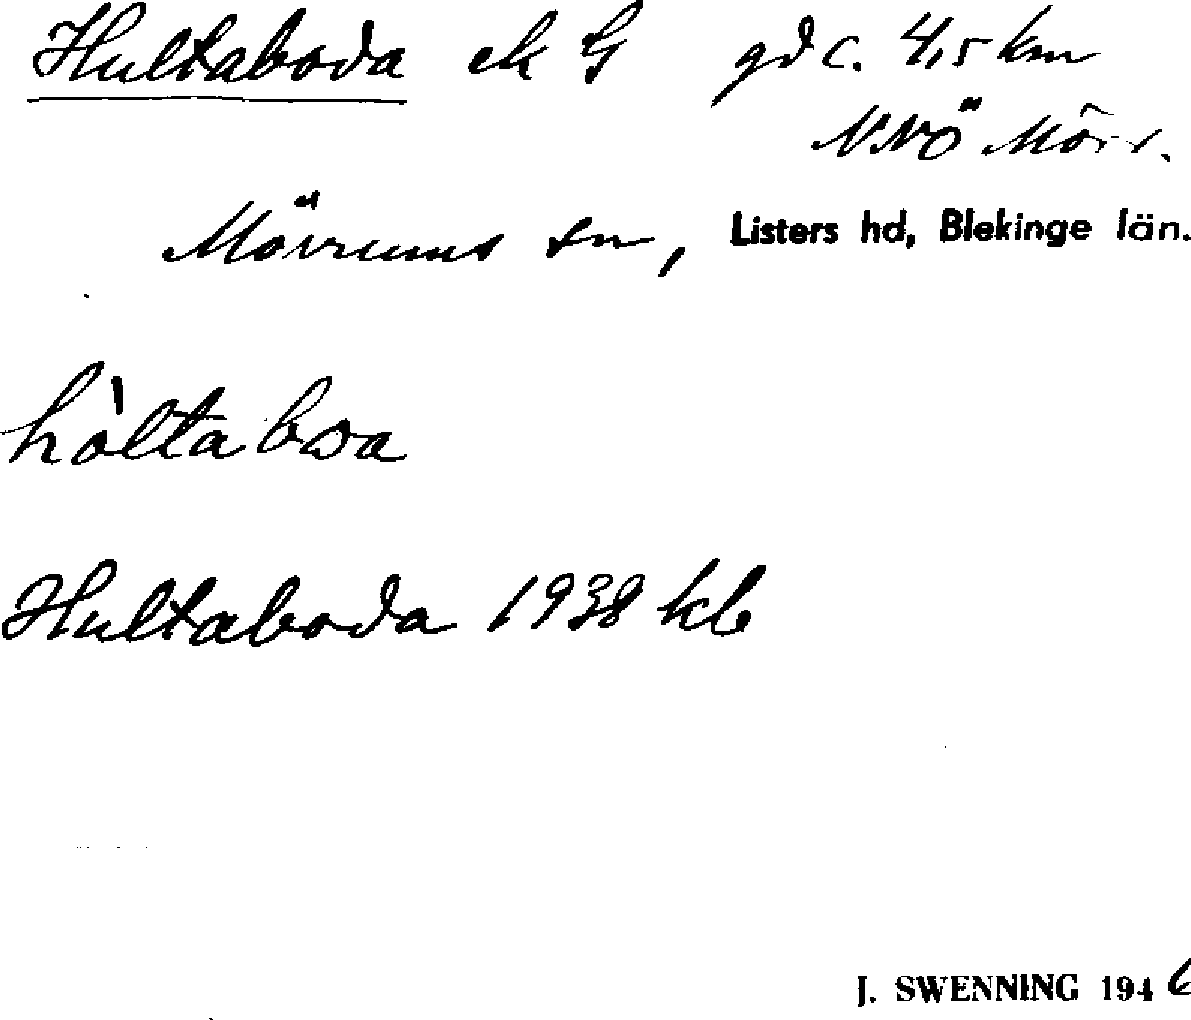 Hultaboda ek G gd c. 4,5 km
NNÖ Mörr.
Mörrums sn, Listers hd, Blekinge län.
hòltaboa
Hultaboda 1938 kb
J. SWENNING 1946